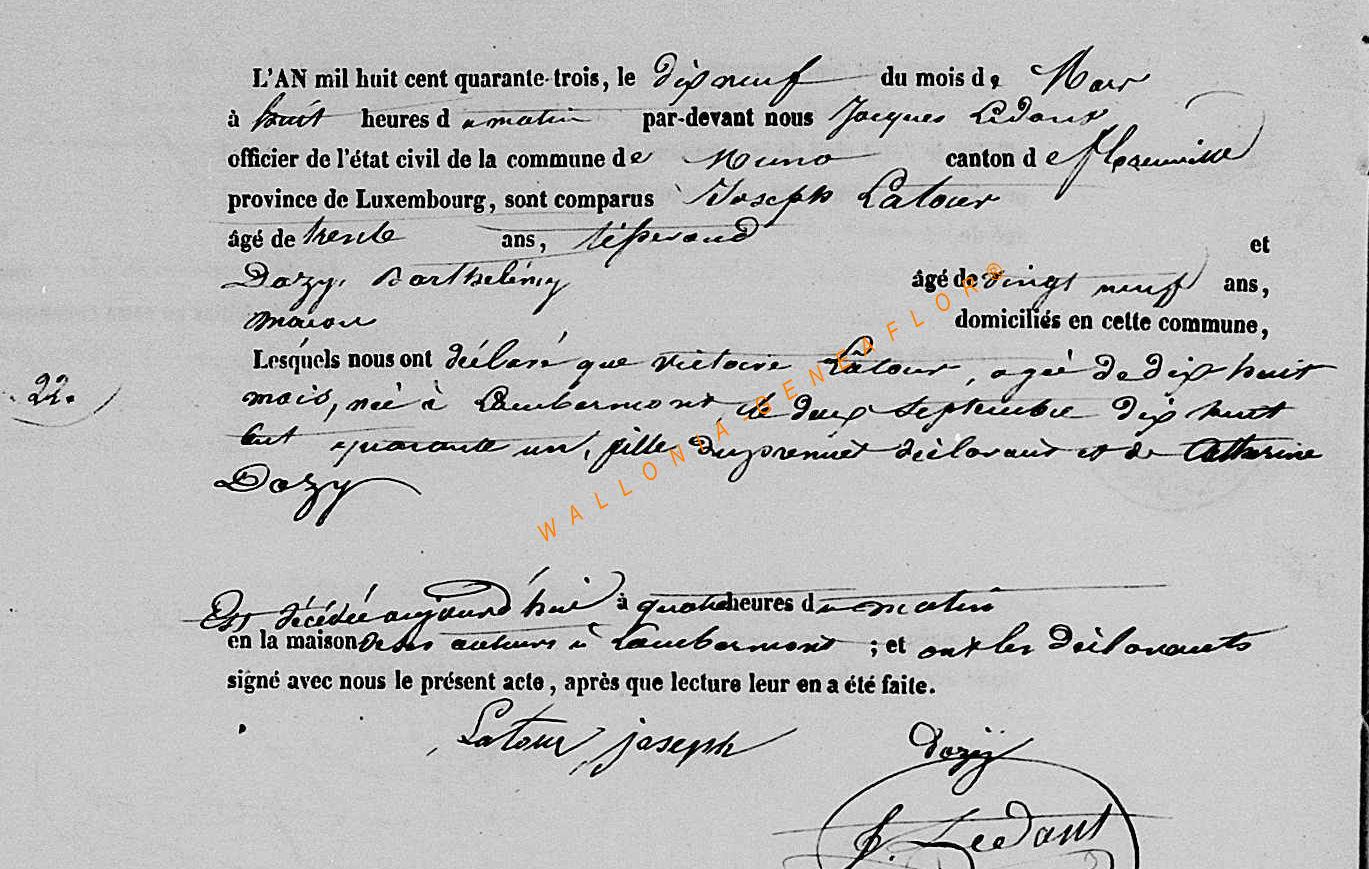 L'AN mil huit cent quarante-trois, le dix neuf du mois de Mars
à huit heures du matin par-devant nous Jacques Ledant
officier de l'état civil de la commune de Muno canton de florenville
province de Luxembourg, sont comparus Joseph Latour
âgé de trente ans, tisserand et
Dozy, Barthélémy âgé de vingt neuf ans,
maçon domiciliés en cette commune,
Lesquels nous ont déclaré que victoire Latour, agée de dix huit
22. mois, née à Lambermont, le deux septembre dix huit
cent quarante un, fille du premier déclarant et de Catherine
Dozy
Est décédée aujourd'hui à quatre heures du matin
en la maison de ses auteurs à Lambermont ; et ont les déclarants
signé avec nous le présent acte, après que lecture leur en a été faite.
Latour joseph Dozy
J. Ledant
WALLONIA-GENEAFLOR®